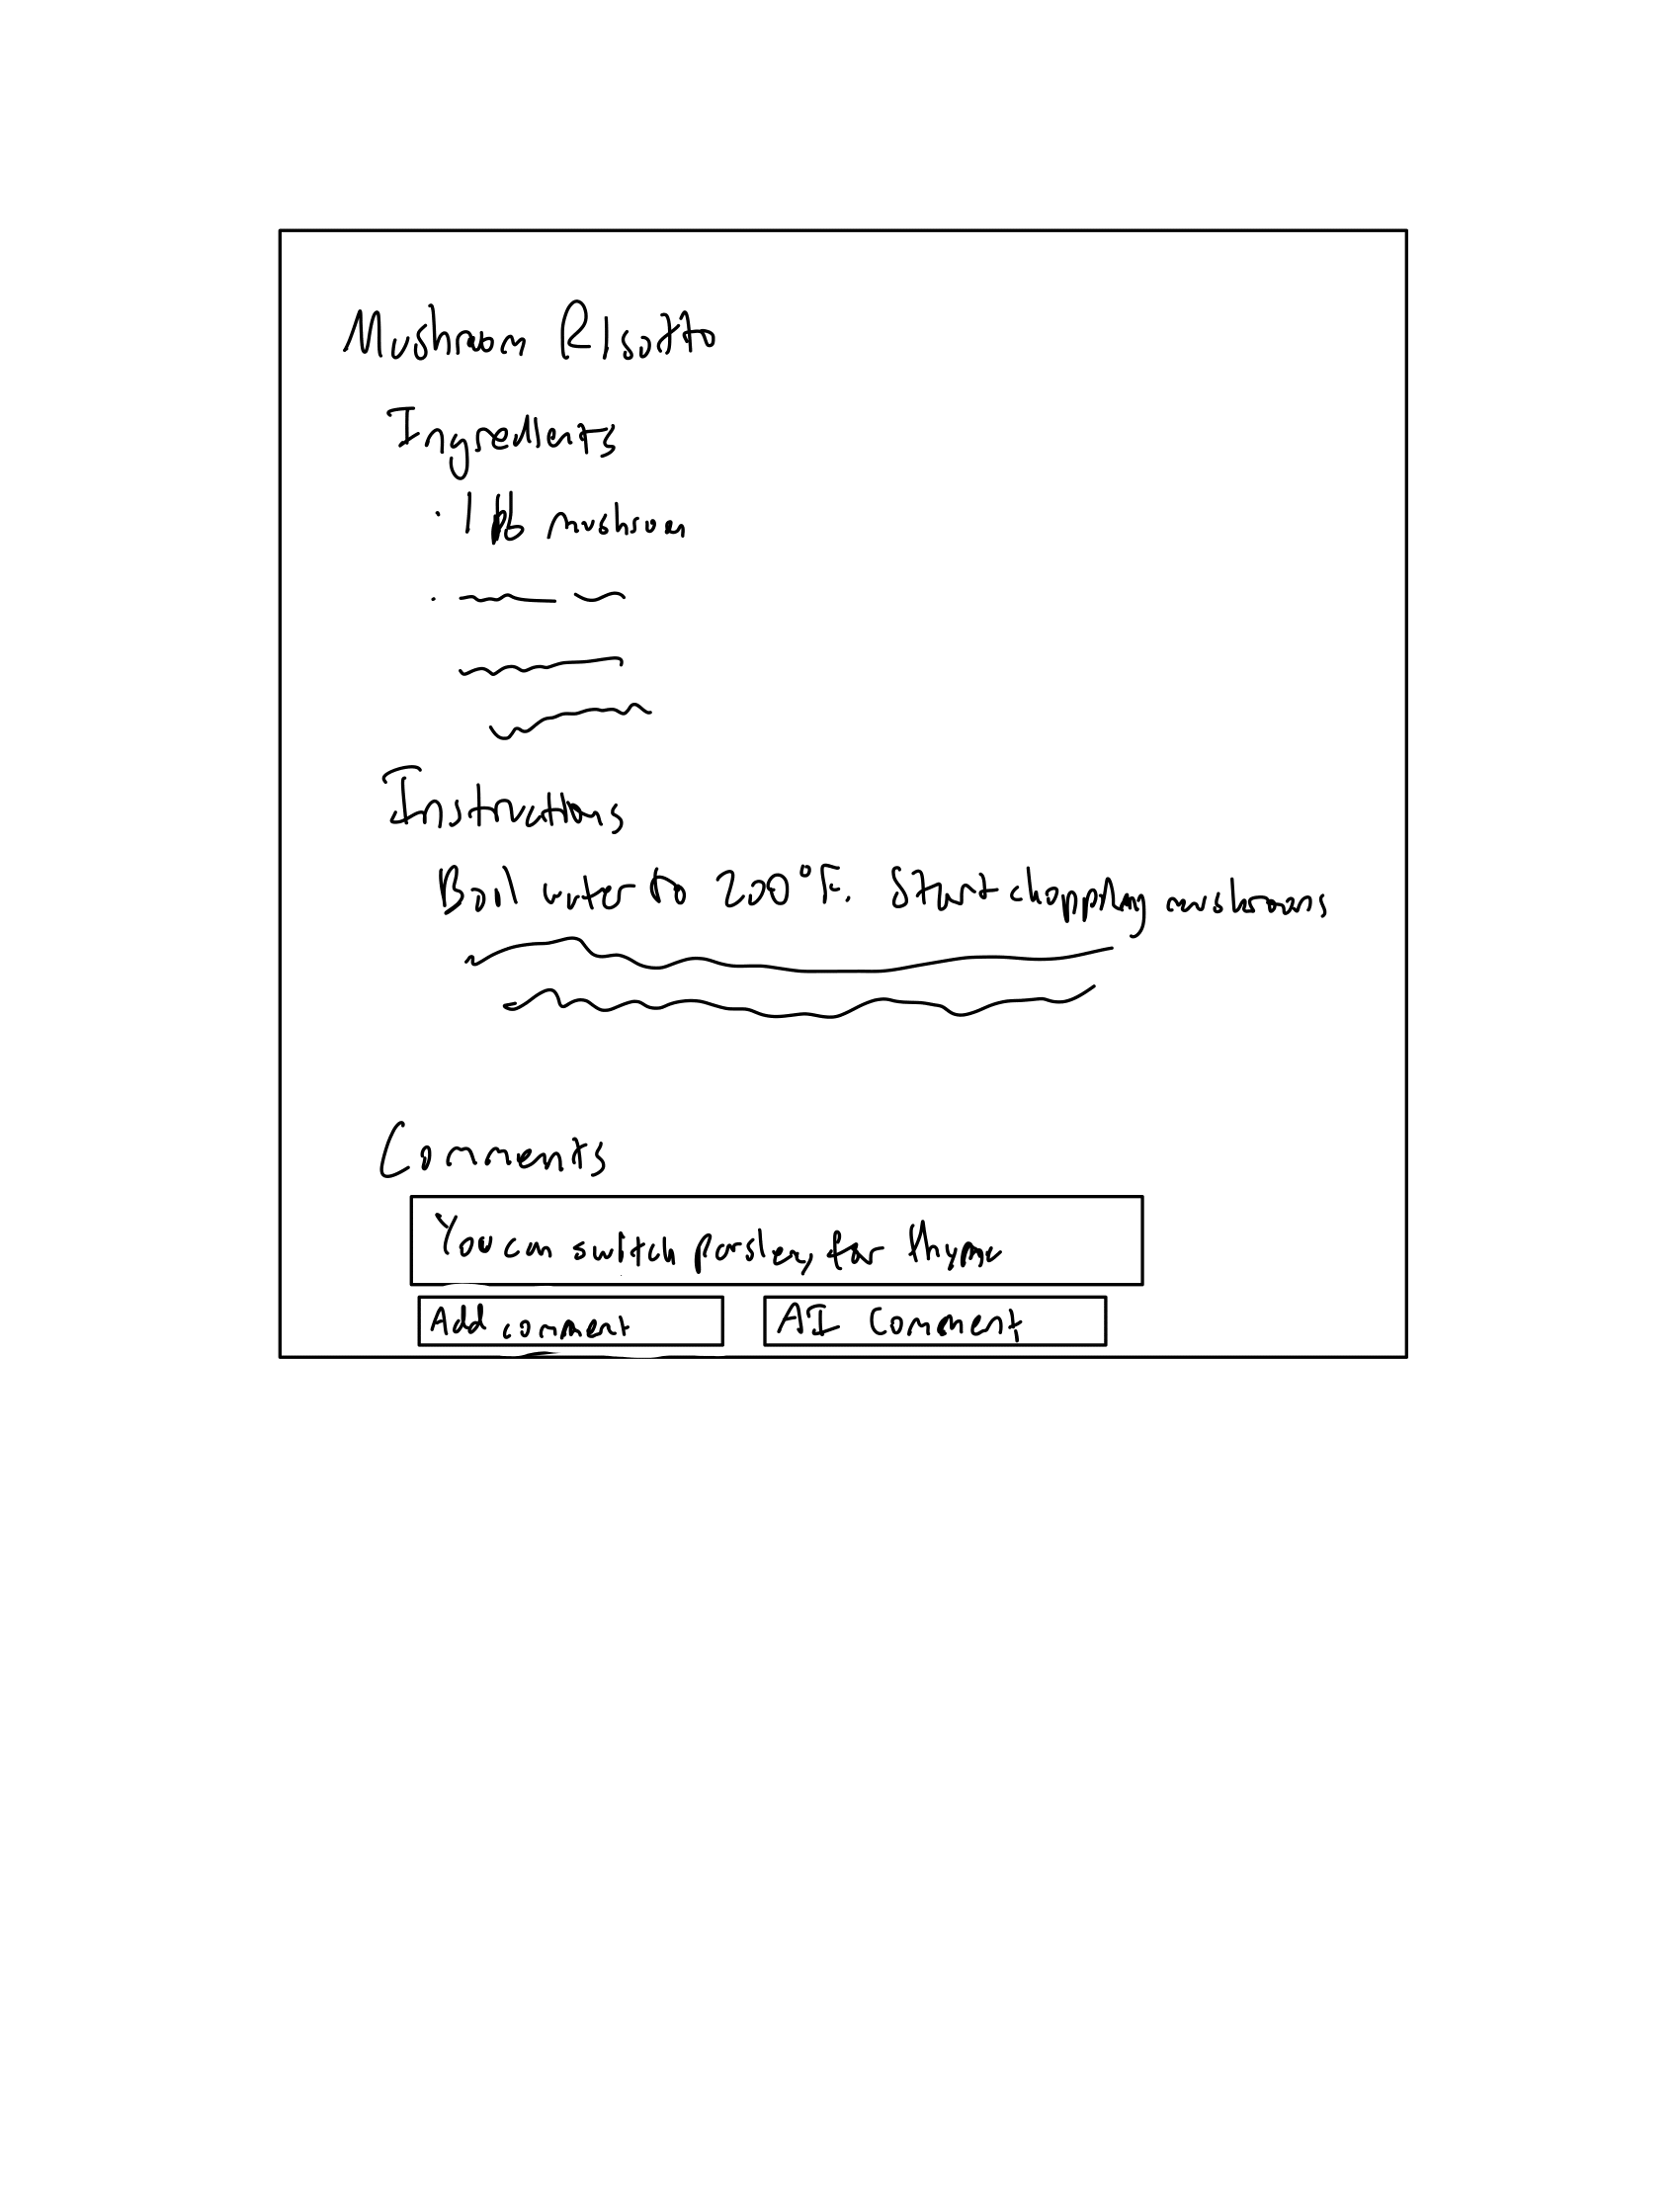 Mushroom Risotto
Ingredients
· 1 lb mushroom
Instructions
Boil water to 200°F. Start chopping mushrooms
Comments
You can switch parsley for thyme
Add comment
AI Comment